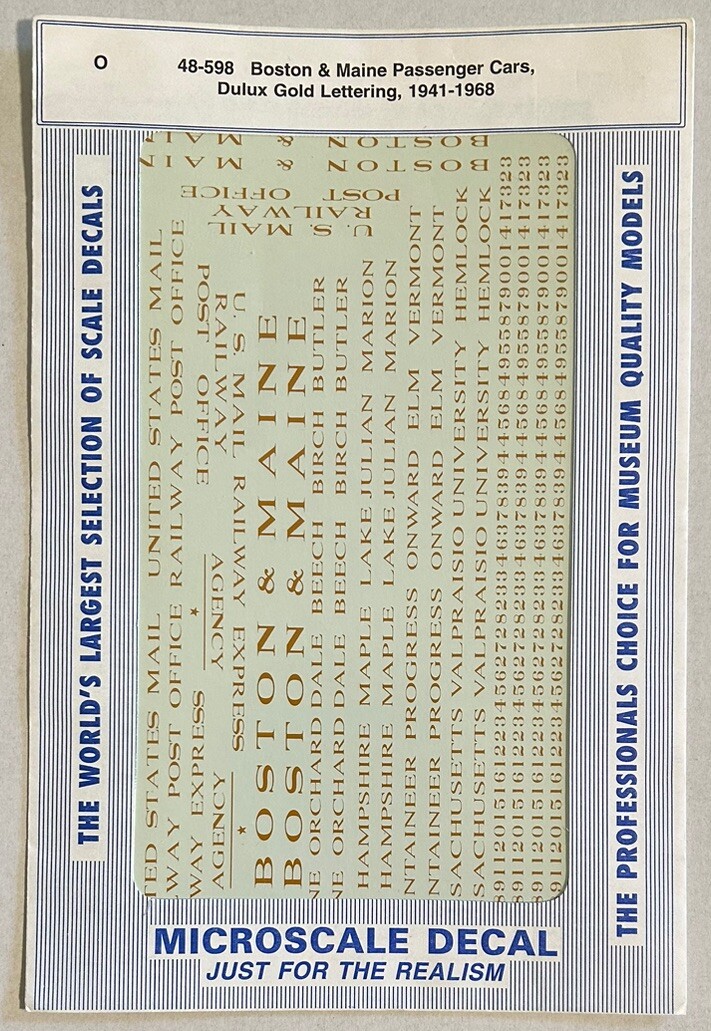 O
48-598 Boston & Maine Passenger Cars,
Dulux Gold Lettering, 1941-1968
THE WORLD'S LARGEST SELECTION OF SCALE DECALS
BOSTON & MAIN
BOSTON & MAIN
POST OFFICE
RAILWAY
U. S. MAIL
TED STATES MAIL UNITED STATES MAIL
WAY POST OFFICE RAILWAY POST OFFICE
WAY EXPRESS
AGENCY
POST OFFICE
RAILWAY
U. S. MAIL
RAILWAY EXPRESS
AGENCY
BOSTON & MAINE
BOSTON & MAINE
NE ORCHARD DALE BEECH BIRCH BUTLER
NE ORCHARD DALE BEECH BIRCH BUTLER
HAMPSHIRE MAPLE LAKE JULIAN MARION
HAMPSHIRE MAPLE LAKE JULIAN MARION
NTAINEER PROGRESS ONWARD ELM VERMONT
NTAINEER PROGRESS ONWARD ELM VERMONT
SACHUSETTS VALPRAISIO UNIVERSITY HEMLOCK
SACHUSETTS VALPRAISIO UNIVERSITY HEMLOCK
THE PROFESSIONALS CHOICE FOR MUSEUM QUALITY MODELS
MICROSCALE DECAL
JUST FOR THE REALISM